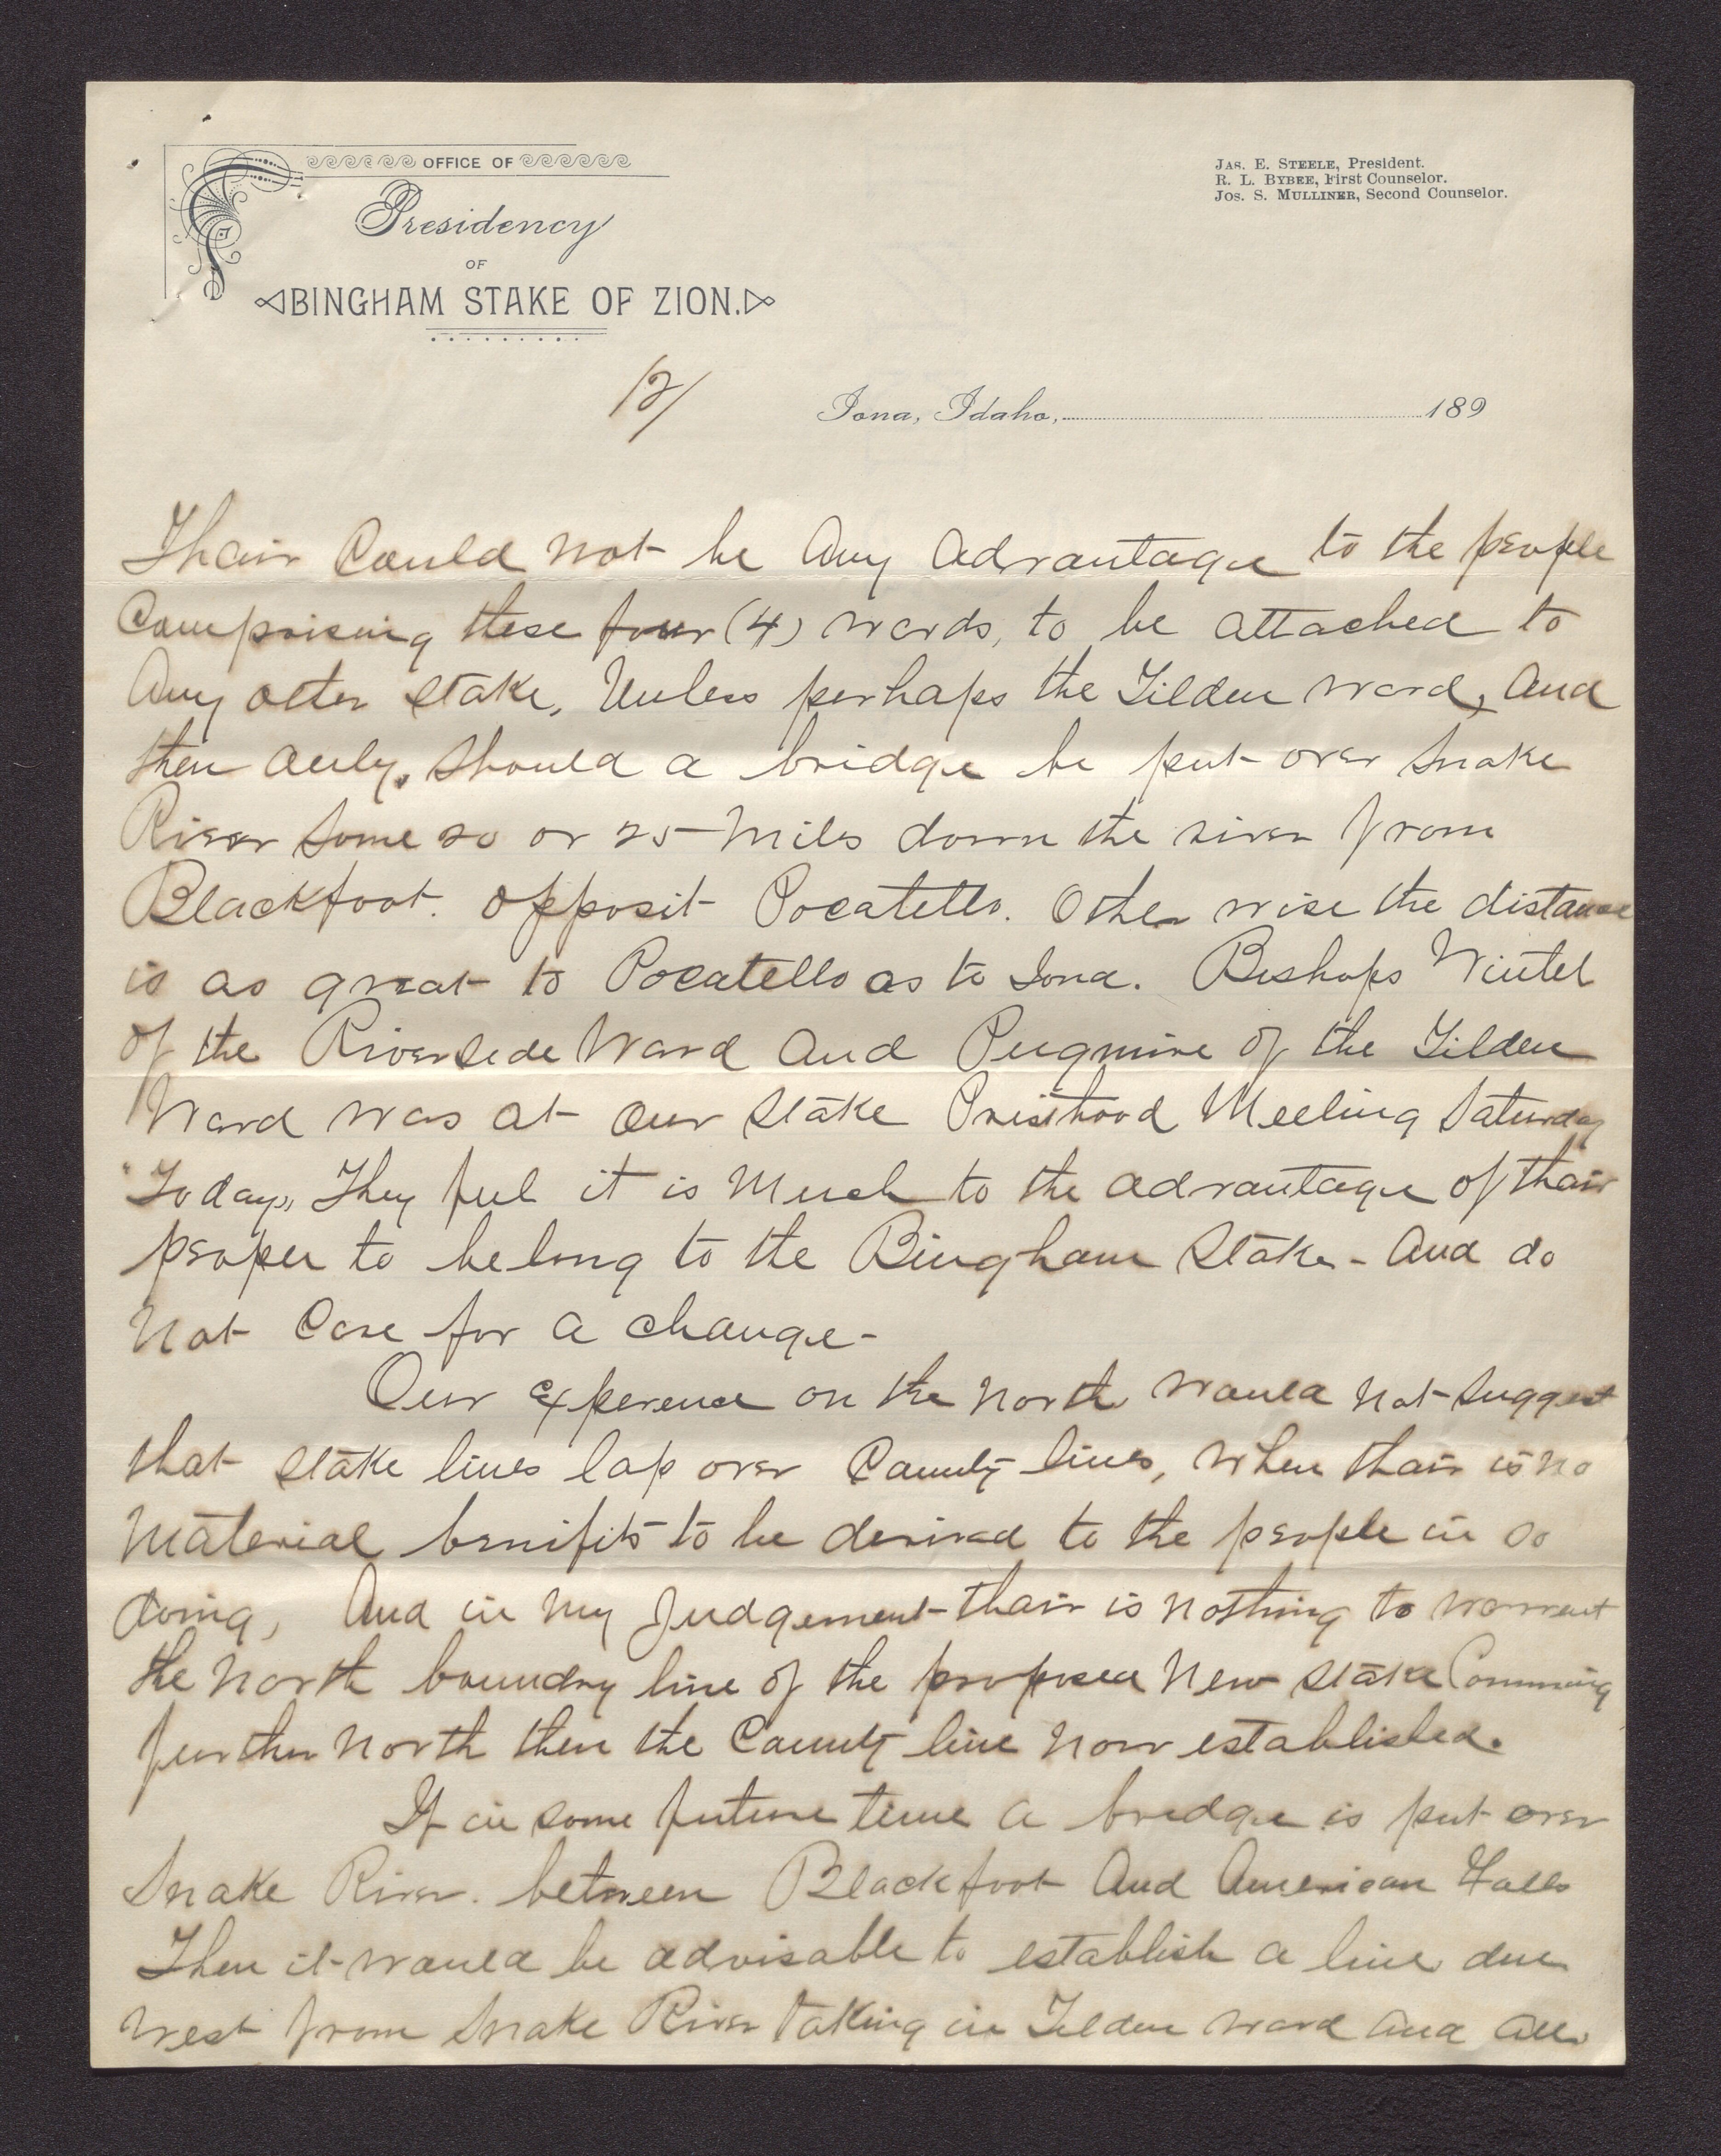 OFFICE OF
Presidency
OF
BINGHAM STAKE OF ZION.
JAS. E. STEELE, President.
R. L. BYBEE, First Counselor.
JOS. S. MULLINER, Second Counselor.
12/
Iona, Idaho, 189
Thair Could not be Any Advantage to the people
Comprising these four (4) wards, to be attached to
Any other stake, Unless perhaps the Tilden ward, And
then only, should a bridge be put over Snake
River some 20 or 25 Miles down the river from
Blackfoot. opposit Pocatello. Other wise the distance
is as great to Pocatello as to Iona. Bishops
of the Riverside Ward And Pugmire of the Tilden
Ward was at our Stake Priesthood Meeting Saturday
"Today," They feel it is Much to the advantage of thair
people to belong to the Bingham Stake - And do
Not Care for a change -
Our experence on the North would Not Suggest
that stake lines lap over County lines, when thair is no
Material benifits to be derived to the people in so
doing, And in My Judgement thair is nothing to warrent
the North boundry line of the proposed New Stake Comming
further North then the County line now established.
If in some future time a bridge is put over
Snake River. between Blackfoot And American Falls
Then it would be advisable to establish a line due
west from Snake River taking in Tilden ward and all